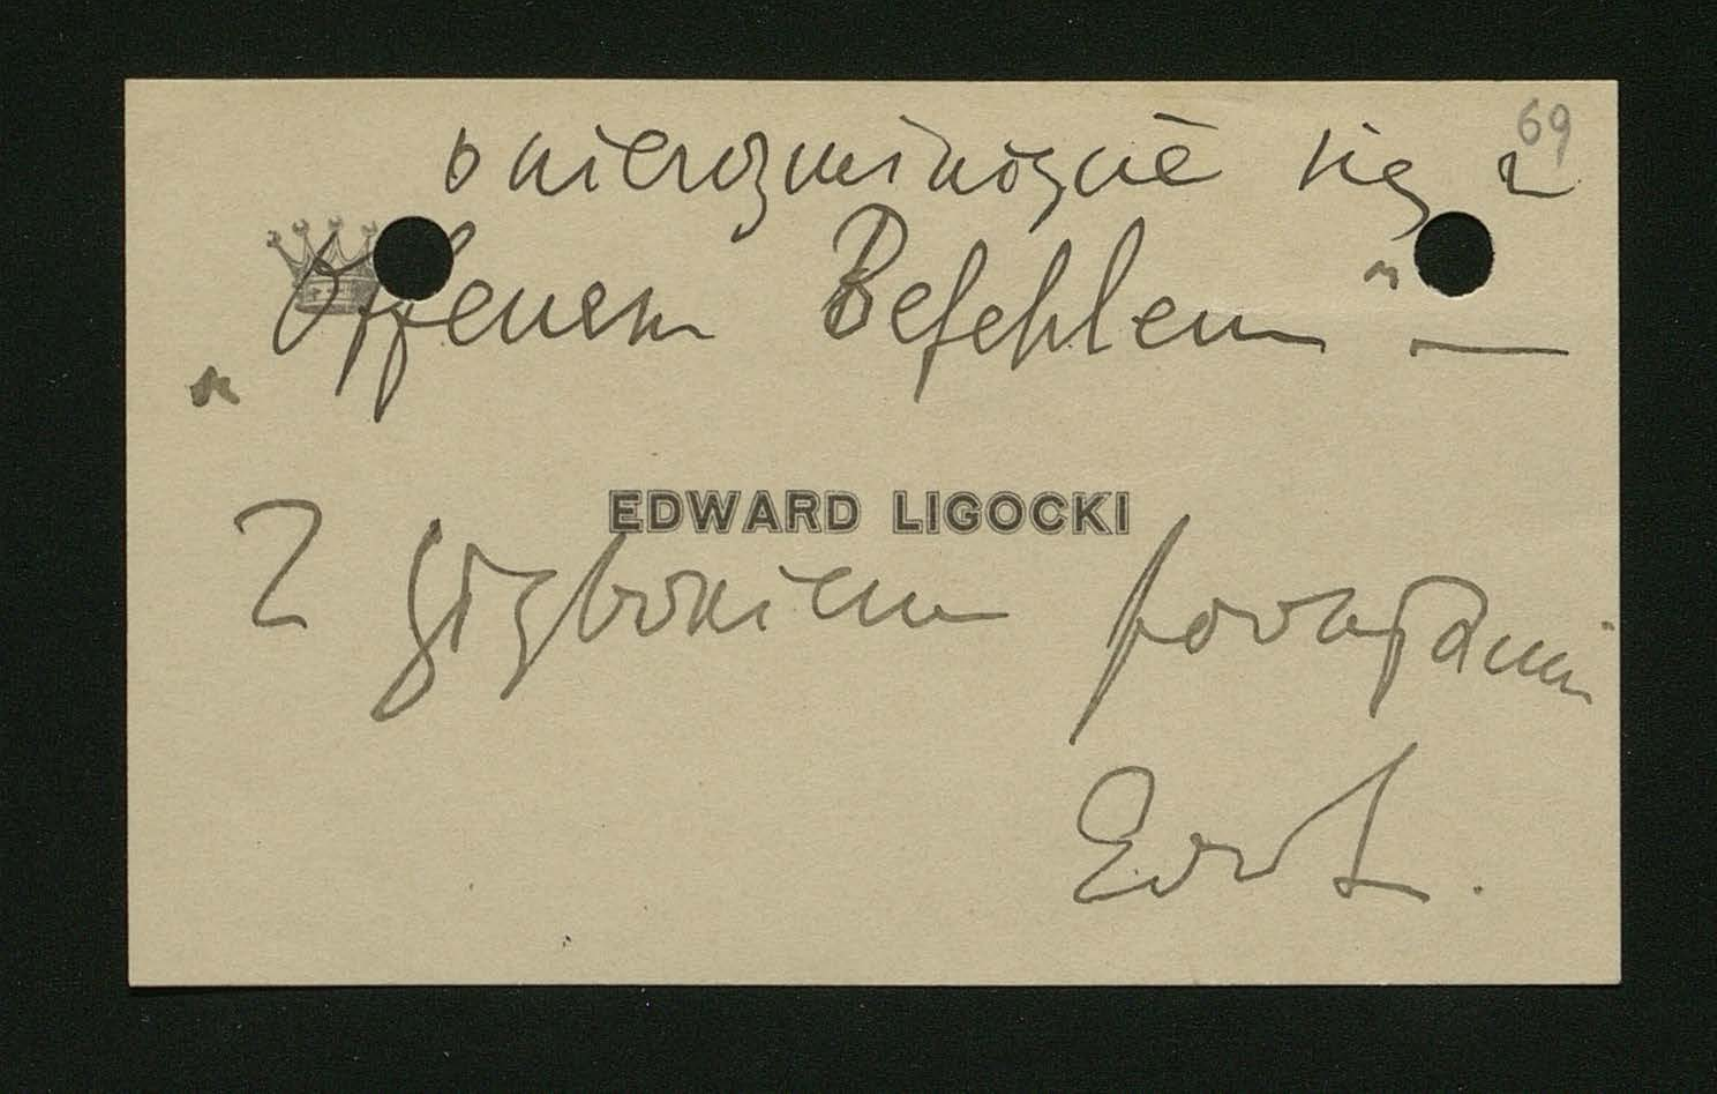 69
o nierozminięcie się z
„Offenem Befehlem" —
EDWARD LIGOCKI
Z głębokiem poważaniem
Edw L.